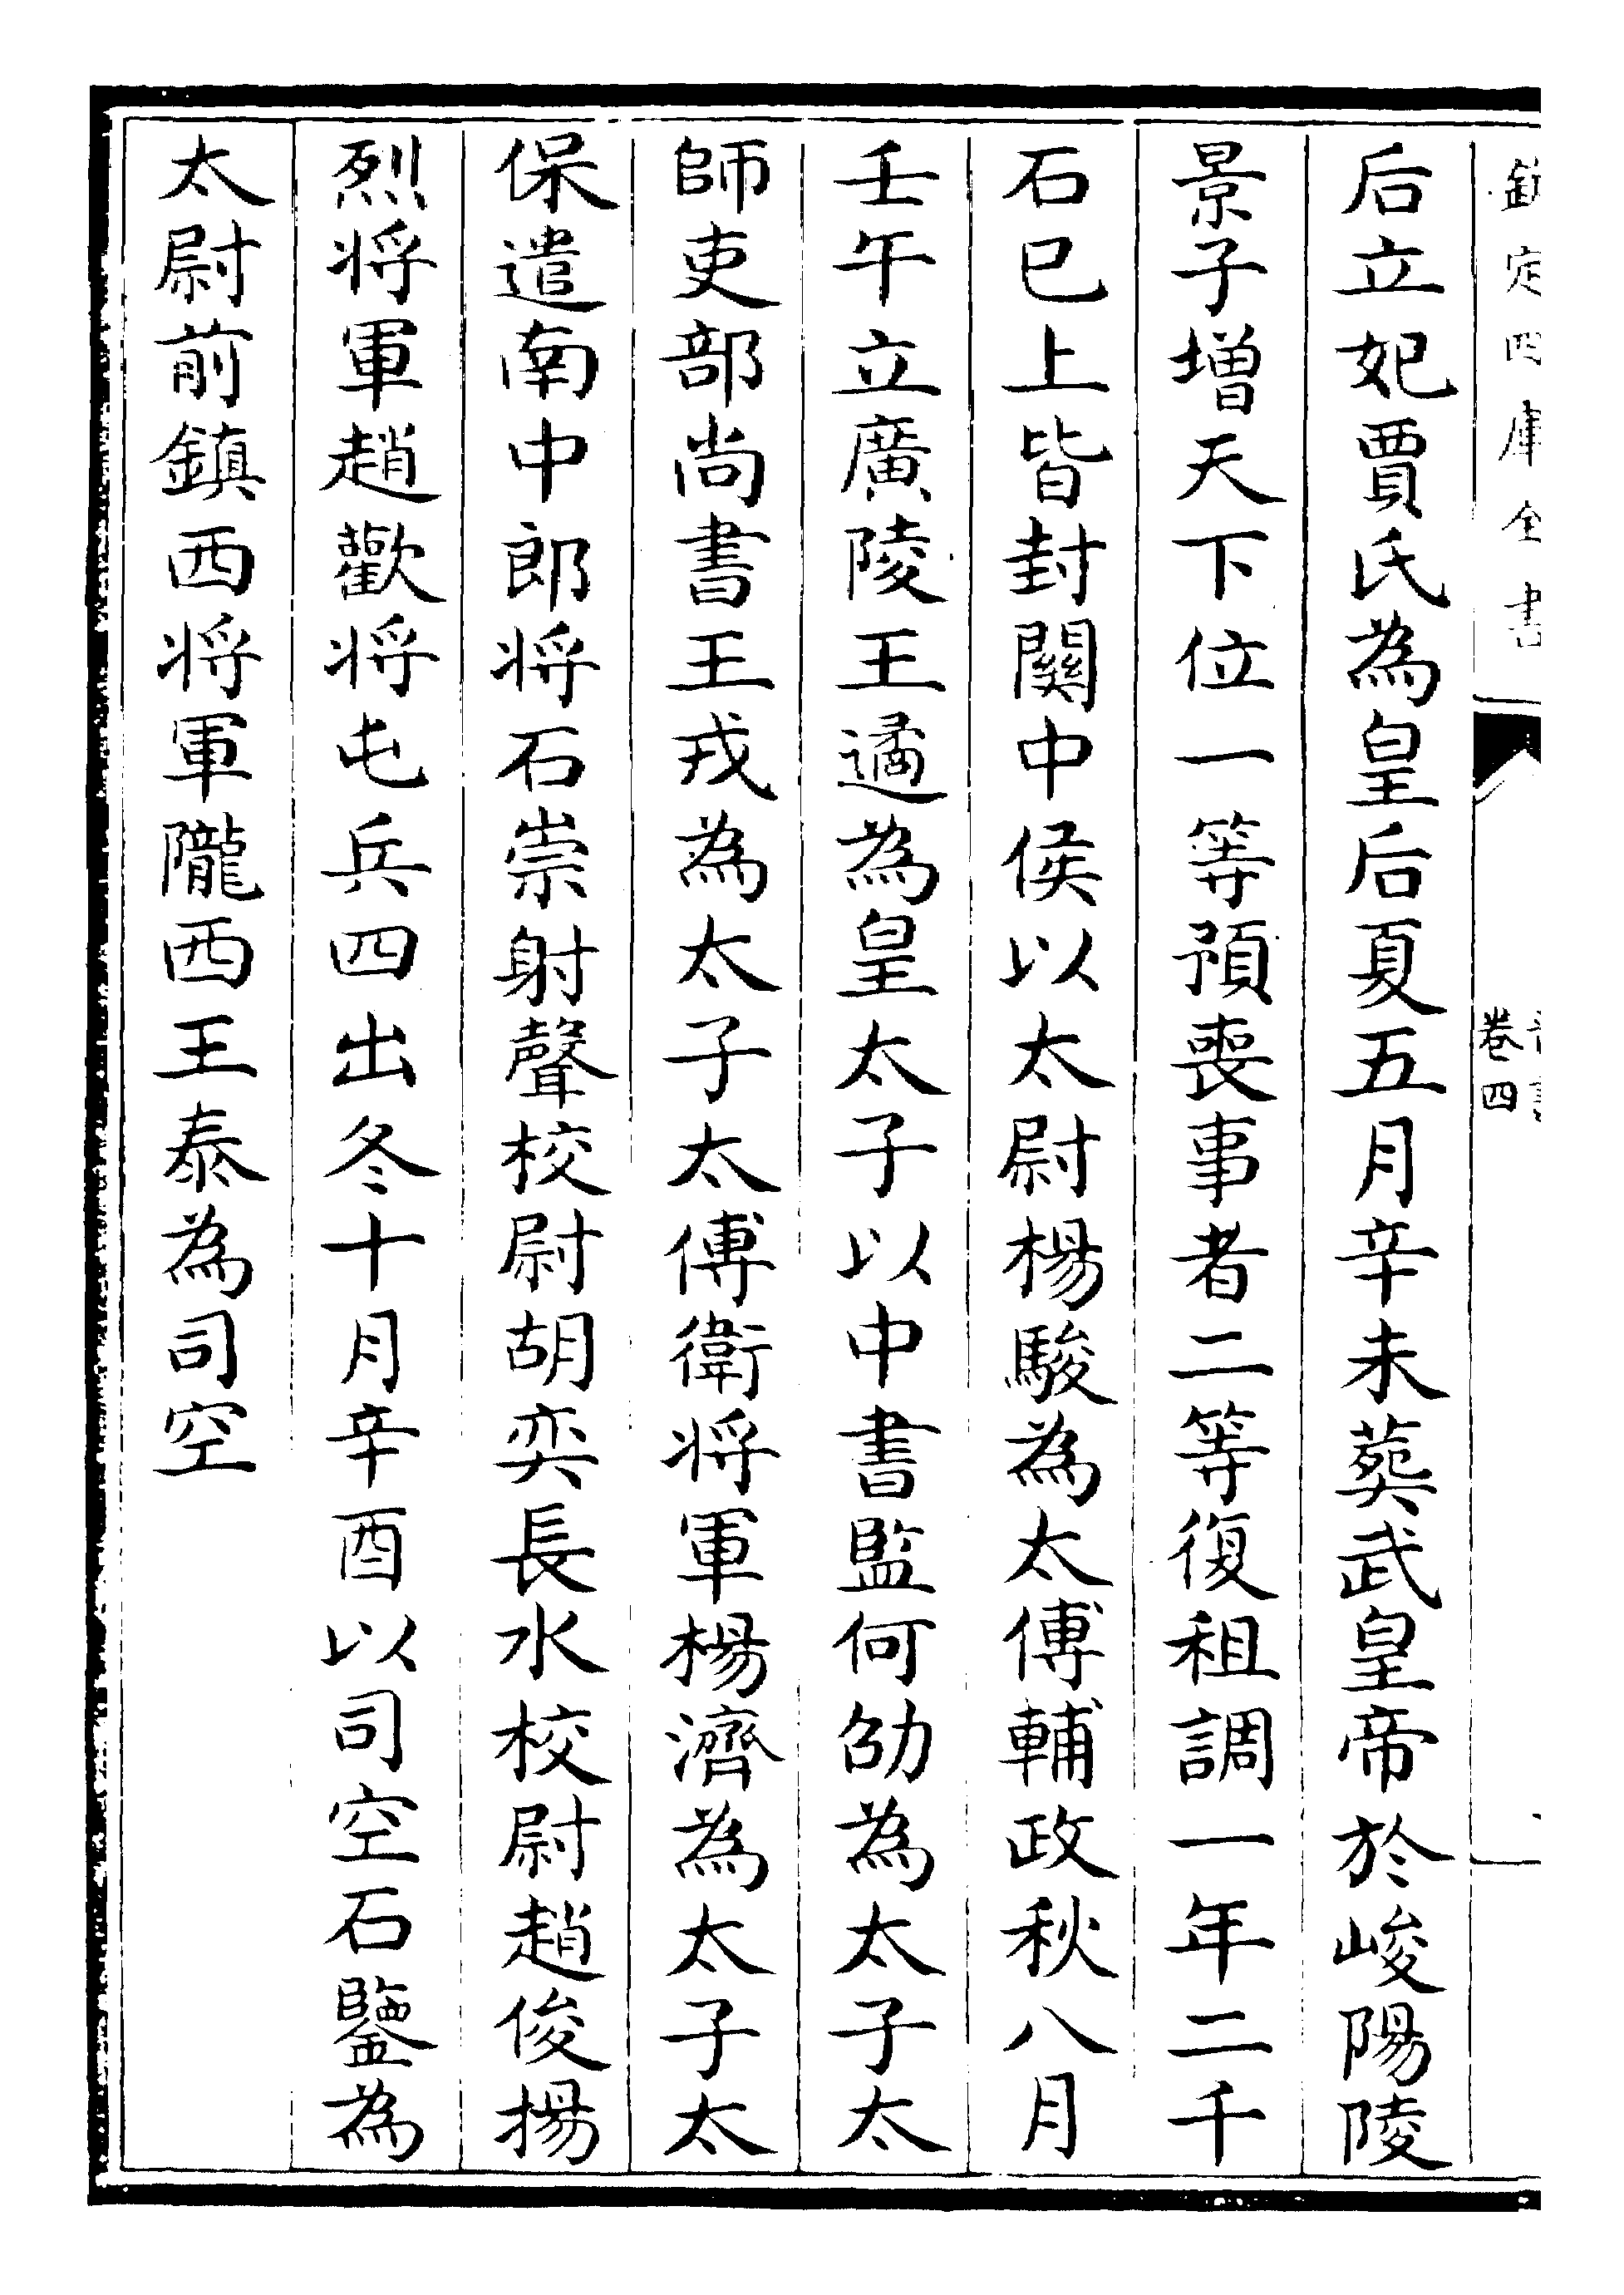 欽定四庫全書
晉書
卷四
后立妃賈氏為皇后夏五月辛未葬武皇帝於峻陽陵
景子增天下位一等預喪事者二等復租調一年二千
石已上皆封關中侯以太尉楊駿為太傅輔政秋八月
壬午立廣陵王遹為皇太子以中書監何劭為太子太
師吏部尚書王戎為太子太傅衛将軍楊濟為太子太
保遣南中郎将石崇射聲校尉胡奕長水校尉趙俊揚
烈将軍趙歡将屯兵四出冬十月辛酉以司空石鑒為
太尉前鎮西将軍隴西王泰為司空